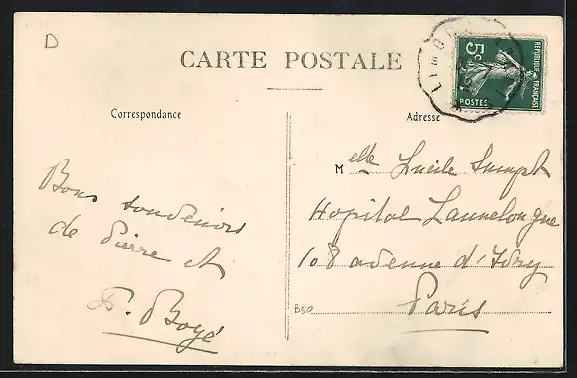 D
CARTE POSTALE
5c
REPUBLIQUE FRANÇAISE
POSTES
Correspondance
Adresse
Bons souvenirs
de Pierre et
F. Boyé
Melle Lucile Sumpt
Hopital Lannelongue
108 avenue d'Ivry
Paris
B50